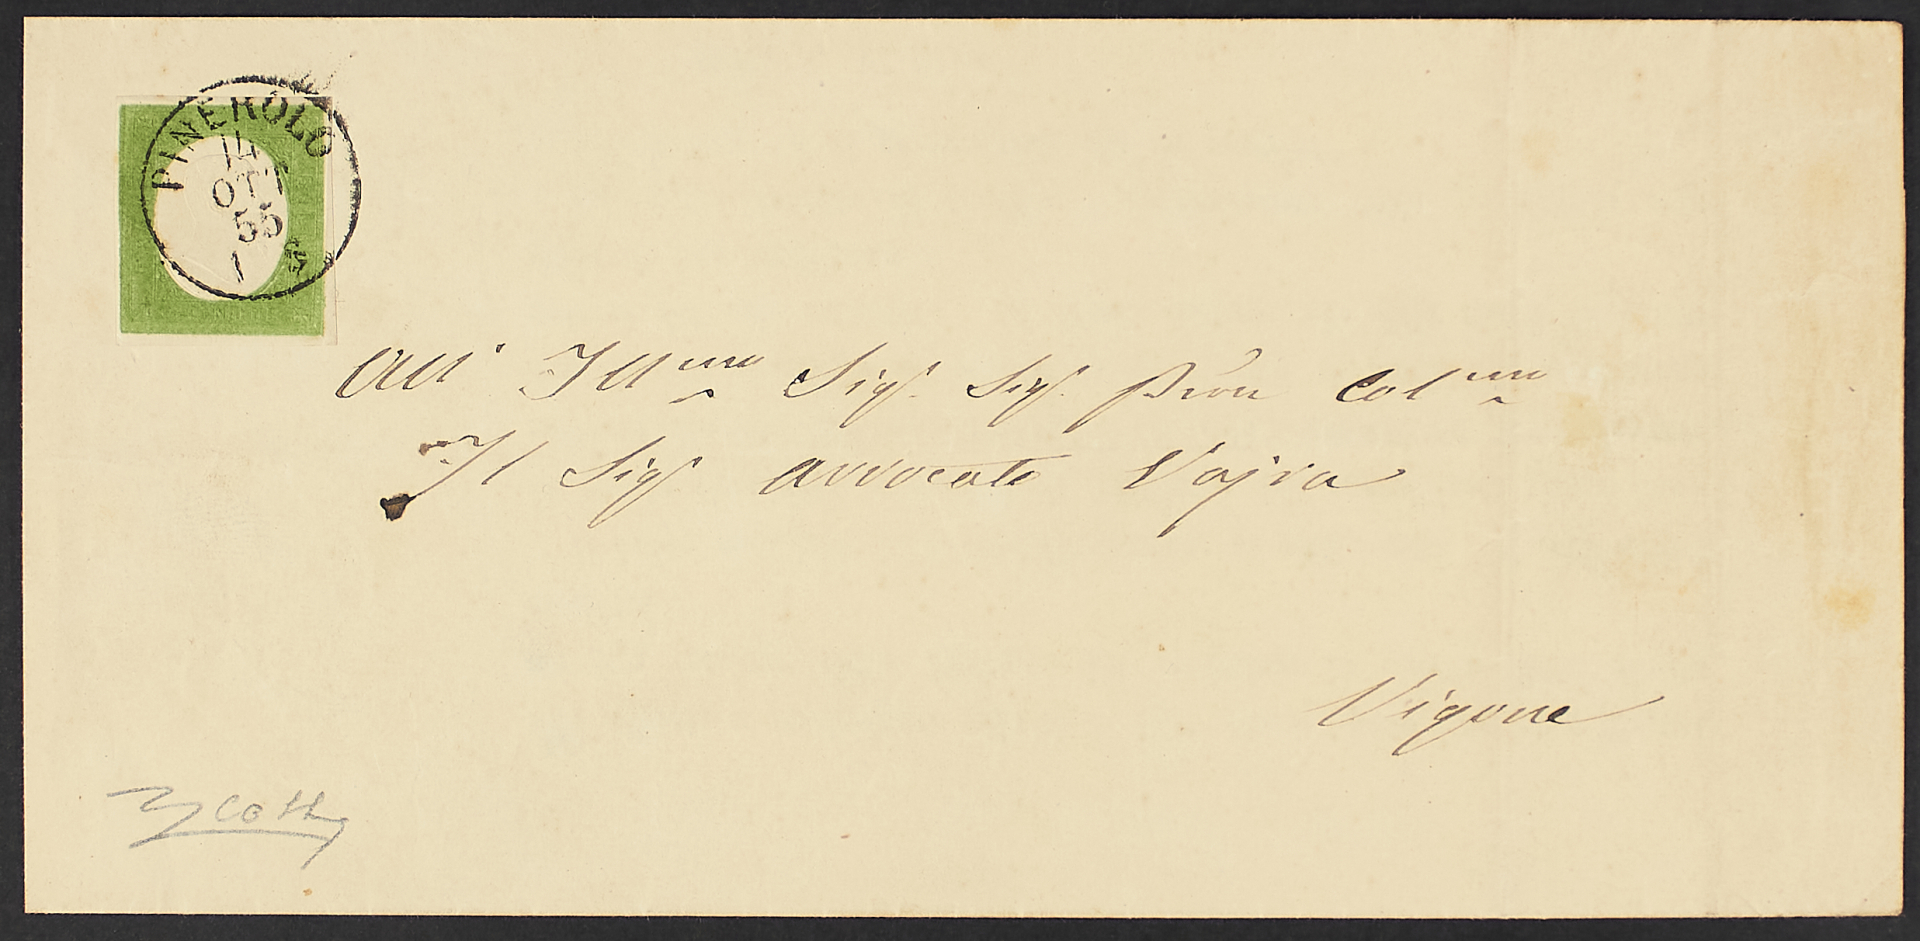 PINEROLO
14
OTT
55
1 S
All' Ill.mo Sig.r Sig.r Pron Col.mo
Il Sig.r Avvocato Vajra
Vigone